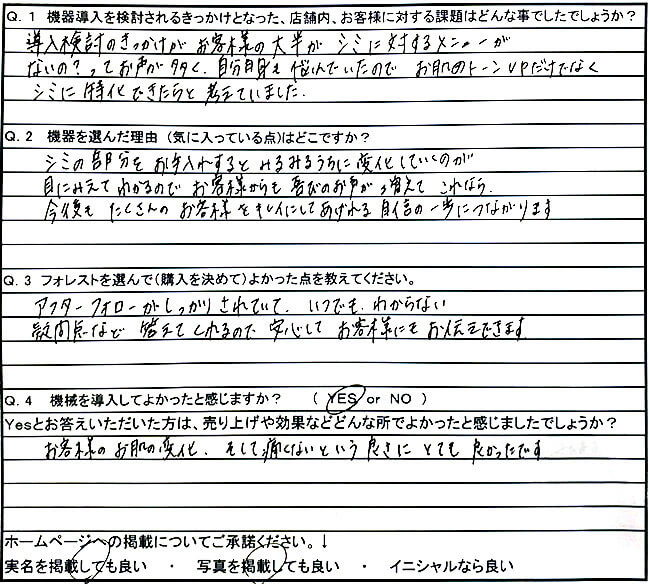 Q.1 機器導入を検討されるきっかけとなった、店舗内、お客様に対する課題はどんな事でしたでしょうか?
導入検討のきっかけが お客様の大半が シミに対するメニューが
ないの?ってお声が多く、自分自身も悩んでいたので お肌のトーンUPだけでなく
シミに特化できたらと考えていました。
Q.2 機器を選んだ理由 (気に入っている点)はどこですか?
シミの部分を お手入れすると みるみるうちに変化していくのが
目にみえて わかるので お客様からも 喜びのお声が 増えて これなら、
今後も たくさんの お客様をキレイにしてあげれる 自信の一歩につながります
Q.3 フォレストを選んで(購入を決めて)よかった点を教えてください。
アフターフォローがしっかりされていて、いつでも、わからない
疑問点など 答えてくれるので 安心して お客様にも お伝えできます
Q.4 機械を導入してよかったと感じますか? ( YES or NO )
Yesとお答えいただいた方は、売り上げや効果などどんな所でよかったと感じましたでしょうか?
お客様のお肌の変化、そして痛くないという良さに とても 良かったです
ホームページへの掲載についてご承諾ください。↓
実名を掲載しても良い ・ 写真を掲載しても良い ・ イニシャルなら良い